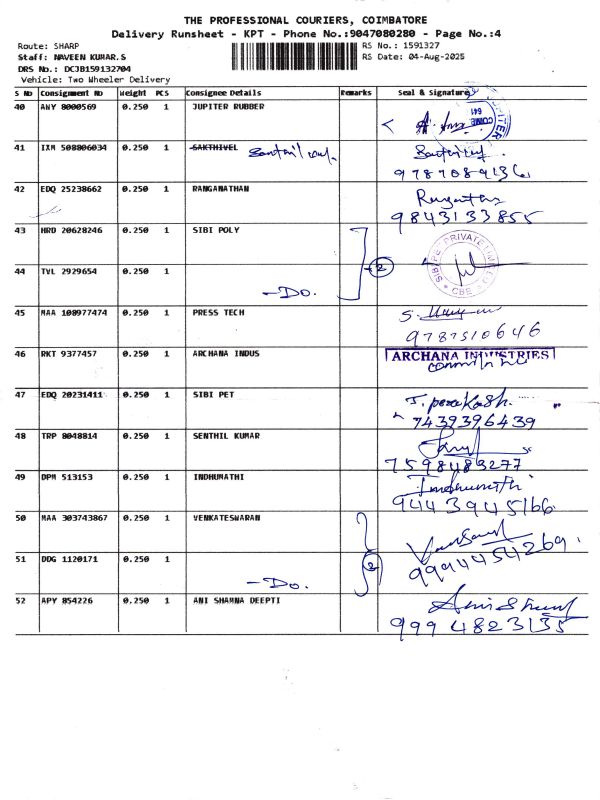 THE PROFESSIONAL COURIERS, COIMBATORE
Delivery Runsheet - KPT - Phone No.:9047080280 - Page No.:4
Route: SHARP RS No.: 1591327
Staff: NAVEEN KUMAR.S RS Date: 04-Aug-2025
DRS No.: DCJB159132704
Vehicle: Two Wheeler Delivery
S No Consignment No Weight PCS Consignee Details Remarks Seal & Signature
40 ANY 8000569 0.250 1 JUPITER RUBBER
41 IXM 508806034 0.250 1 SAKTHIVEL
9787089136
42 EDQ 25238662 0.250 1 RANGANATHAN
9843133855
43 HRD 20628246 0.250 1 SIBI POLY
2
SIBI PET PRIVATE LIMITED CBE
44 TVL 2929654 0.250 1
-DO.
45 MAA 108977474 0.250 1 PRESS TECH
9787510646
46 RKT 9377457 0.250 1 ARCHANA INDUS ARCHANA INDUSTRIES
47 EDQ 20231411 0.250 1 SIBI PET
7439396439
48 TRP 8048814 0.250 1 SENTHIL KUMAR
7598483277
49 DPM 513153 0.250 1 INDHUMATHI Indhumathi
9443945166
50 MAA 303743867 0.250 1 VENKATESWARAN
51 DDG 1120171 0.250 1 2 9994454269
-DO.
52 APY 854226 0.250 1 ANI SHARNA DEEPTI
9994823135